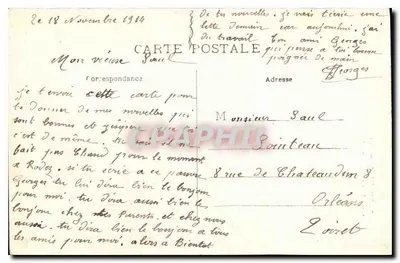 Le 18 Novembre 1914
de tes nouvelles. je vais t'écrire une
lettre demain car aujourd'hui j'ai
du travail Ton ami Georges
qui pense à toi bonne
poignée de main
Georges
CARTE POSTALE
Mon vieux Paul
Correspondance
Adresse
je t'envoi cette carte pour
te donner de mes nouvelles qui
sont bonnes et j'espère que
c'est de même. Ici il ne
fait pas Chaud pour le moment
à Rodez. si tu écris à ce pauvre
Georges tu lui dira bien le bonjour
pour moi, tu dira bien le
bonjour chez tes Parents et chez nous
aussi. tu dira bien le bonjour à tous
les amis pour moi. alors à Bientôt
Monsieur Paul
Pointeau
8 rue de Chateaudun 8
Orléans
Loiret
CPARAMA